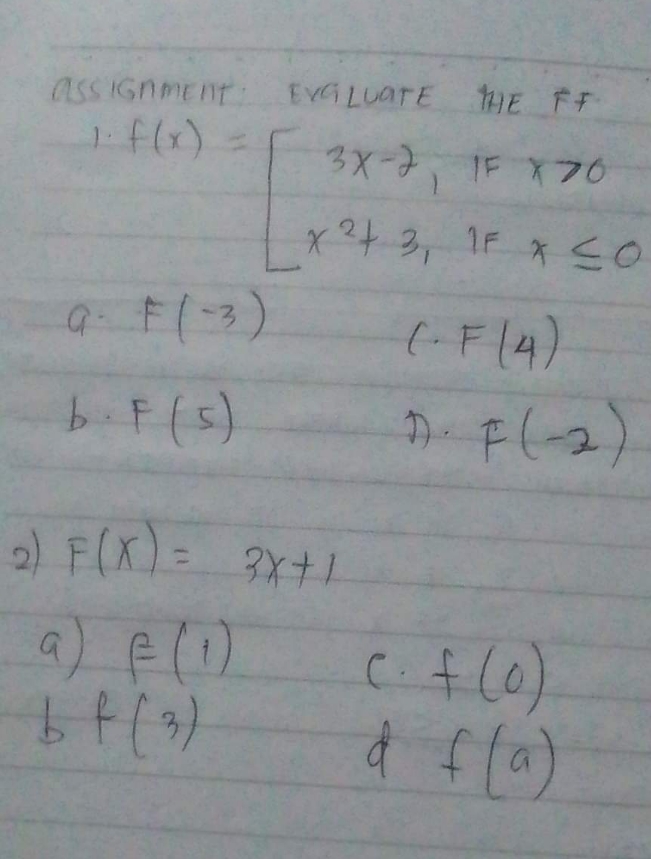 ASSIGNMENT: EVALUATE THE FF
1. f(x) = [ 3x-2, IF x>0
x²+ 3, IF x ≤ 0
a. F(-3) C. F(4)
b. F(5) D. F(-2)
2) F(X) = 3X+1
a) F(1) c. f(0)
b f(3) d f(a)